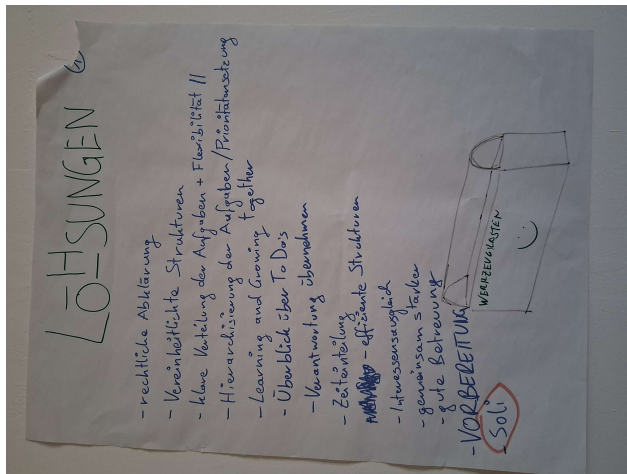 LÖHSUNGEN
- rechtliche Abklärung
- Vereinheitlichte Strukturen
- klare Verteilung der Aufgaben + Flexibilität II
- Hierarchisierung der Aufgaben/Prioritätensetzung
- Learning and Growing together
- Überblick über To Do's
- Verantwortung übernehmen
- Zeiteinteilung
- effiziente Strukturen
- Interessensausgleich
- gemeinsam stärker
- gute Betreuung
- VORBEREITUNG
Soli
WERKZEUGKASTEN